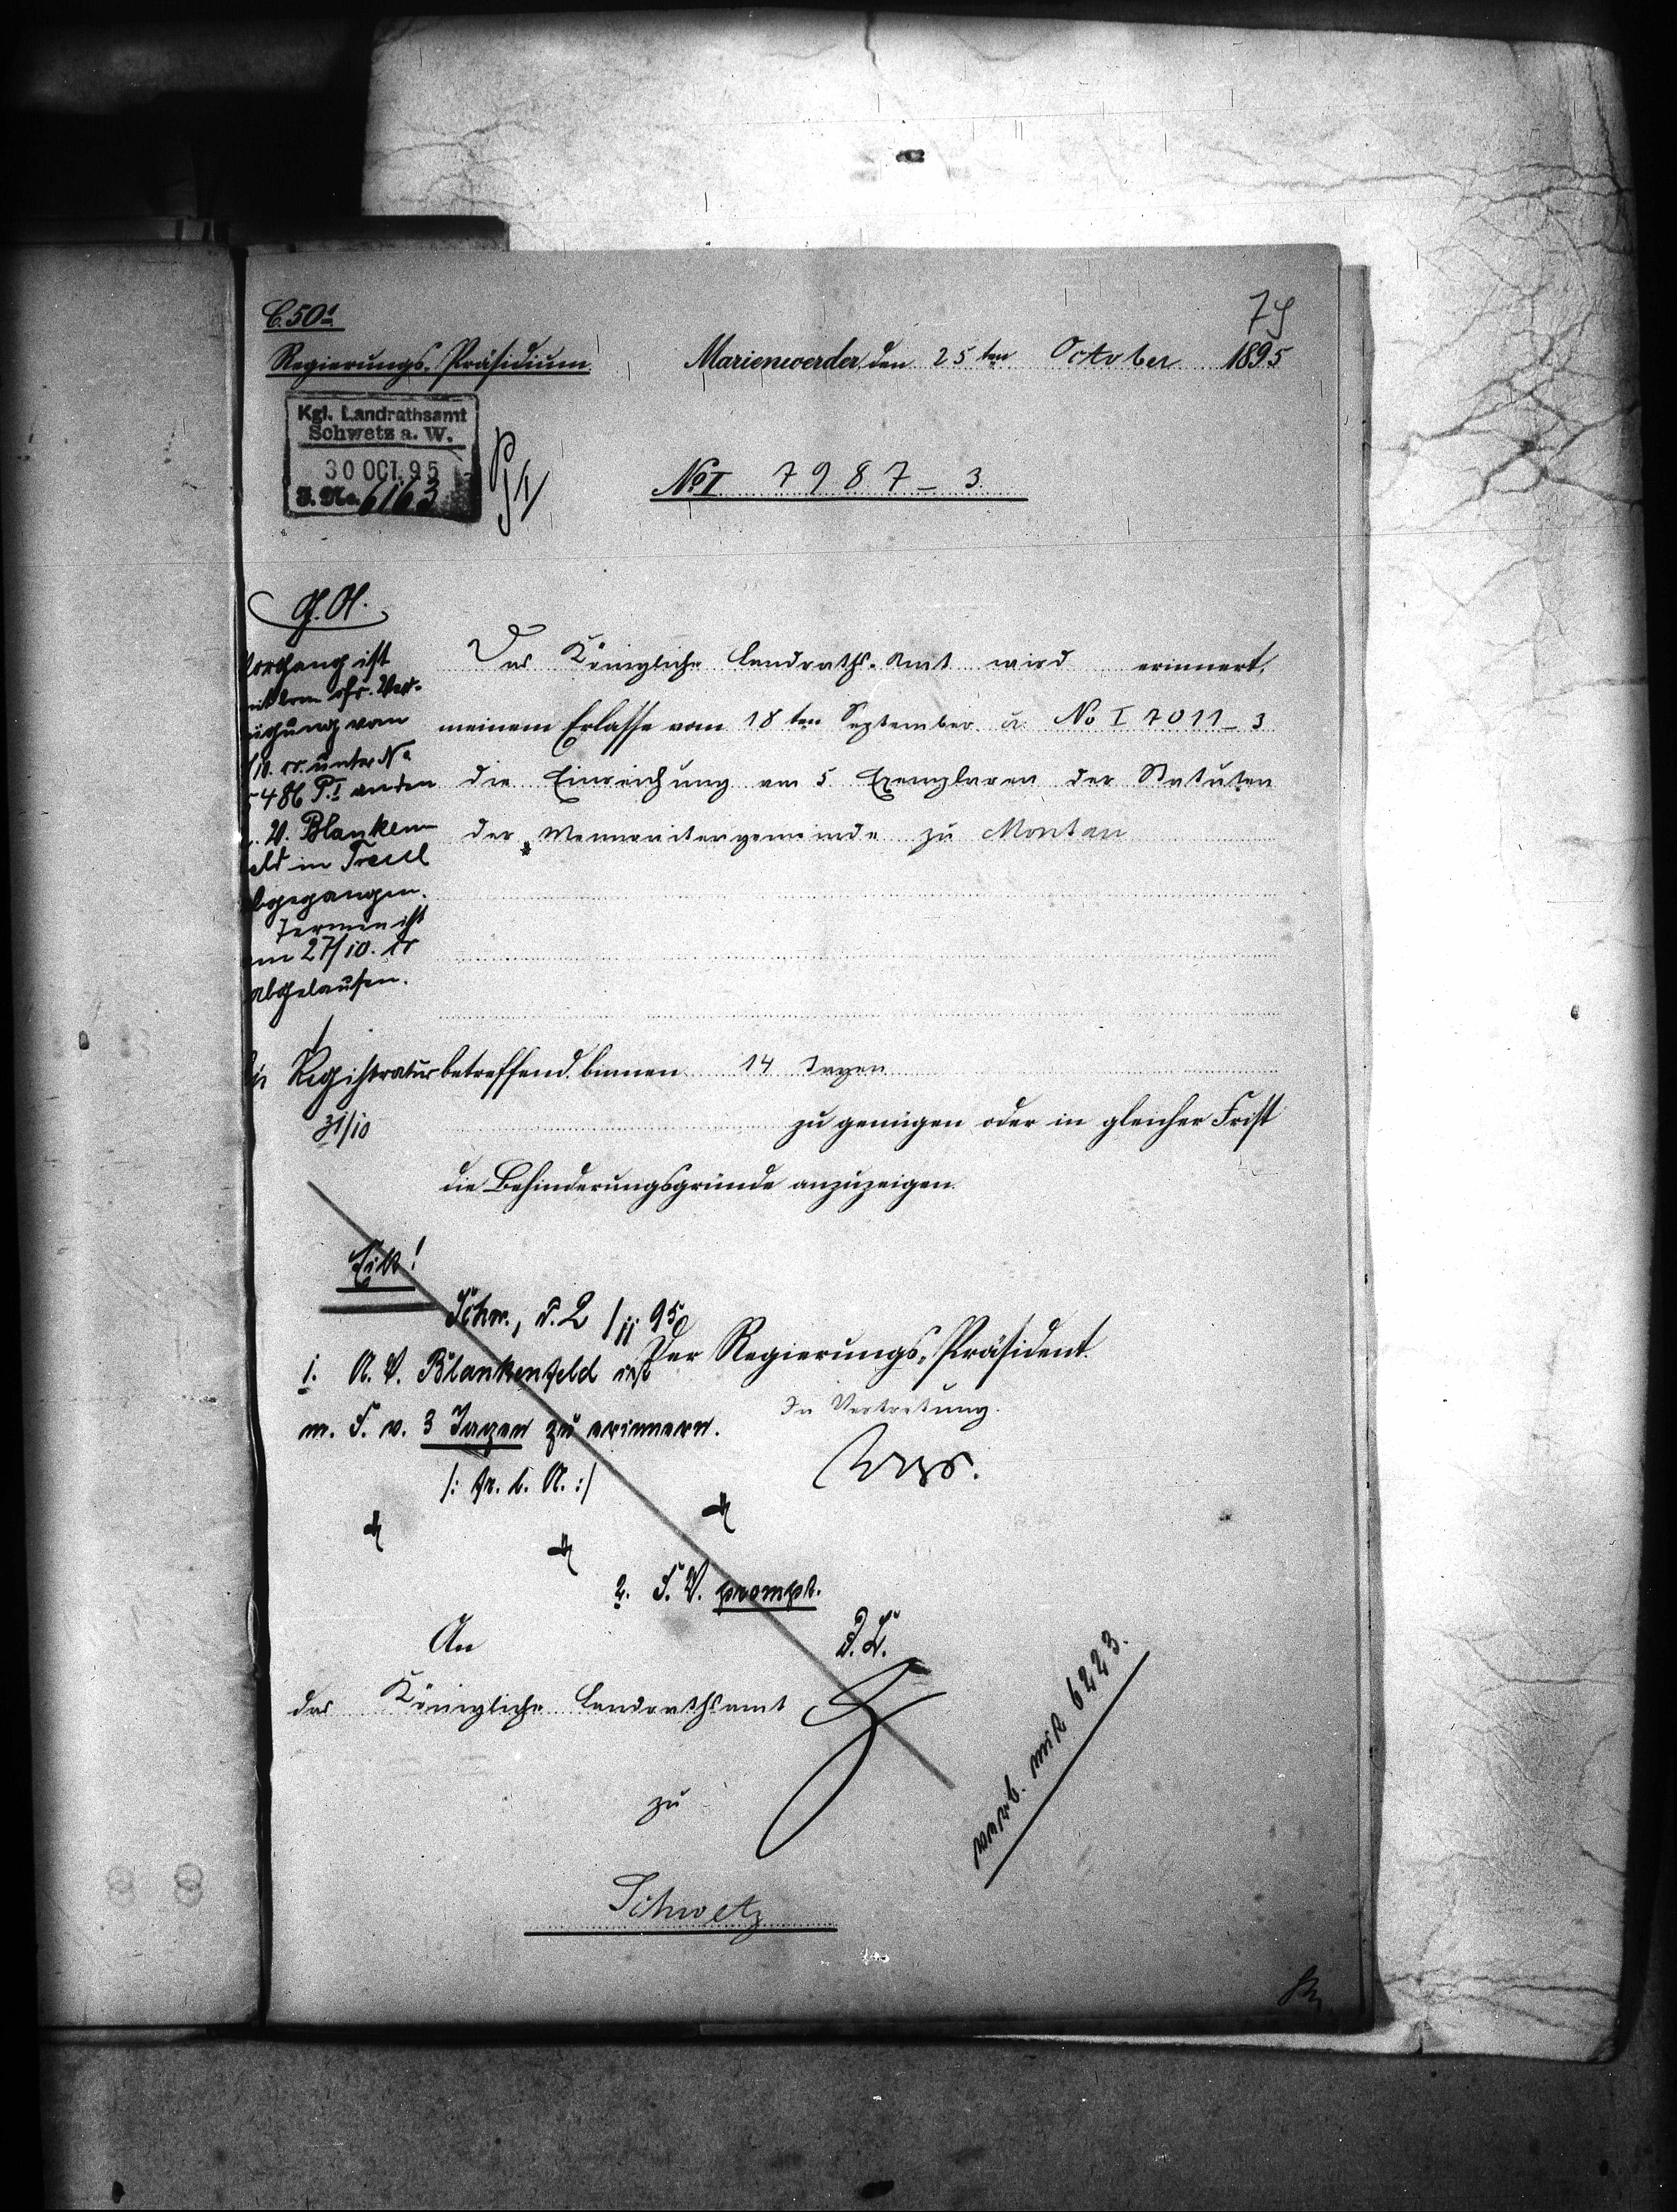 C. 501
79
Regierungs-Präsidium
Marienwerder, den 25ten October 1895
Kgl. Landrathsamt
Schwetz a. W.
30 OCT. 95
J. No. 6163
No I 7987-3
Vorgang ist
mit dem
vom
10. cr. unter No
5486 P.I an den
A. V. Blanken-
feld in Treul
abgegangen.
Termin ist
am 27/10. cr
abgelaufen.
Registratur
31/10
Das Königliche Landraths-Amt wird erinnert,
meinem Erlasse vom 18ten September cr. No I 7011-3
die Einreichung von 5 Exemplaren der Statuten
der Mennonitengemeinde zu Montau
betreffend binnen 14 Tagen
zu genügen oder in gleicher Frist
die Behinderungsgründe anzuzeigen.
Der Regierungs-Präsident.
In Vertretung.
Eilt!
Schw., d. 2/11 95
1. A. V. Blankenfeld ist
m. F. v. 3 Tagen zu erinnern.
/: fr. d. A. :/
2. S. V. prompt.
D. L.
An
das Königliche Landrathsamt
zu
Schwetz
verb. mit 6223.